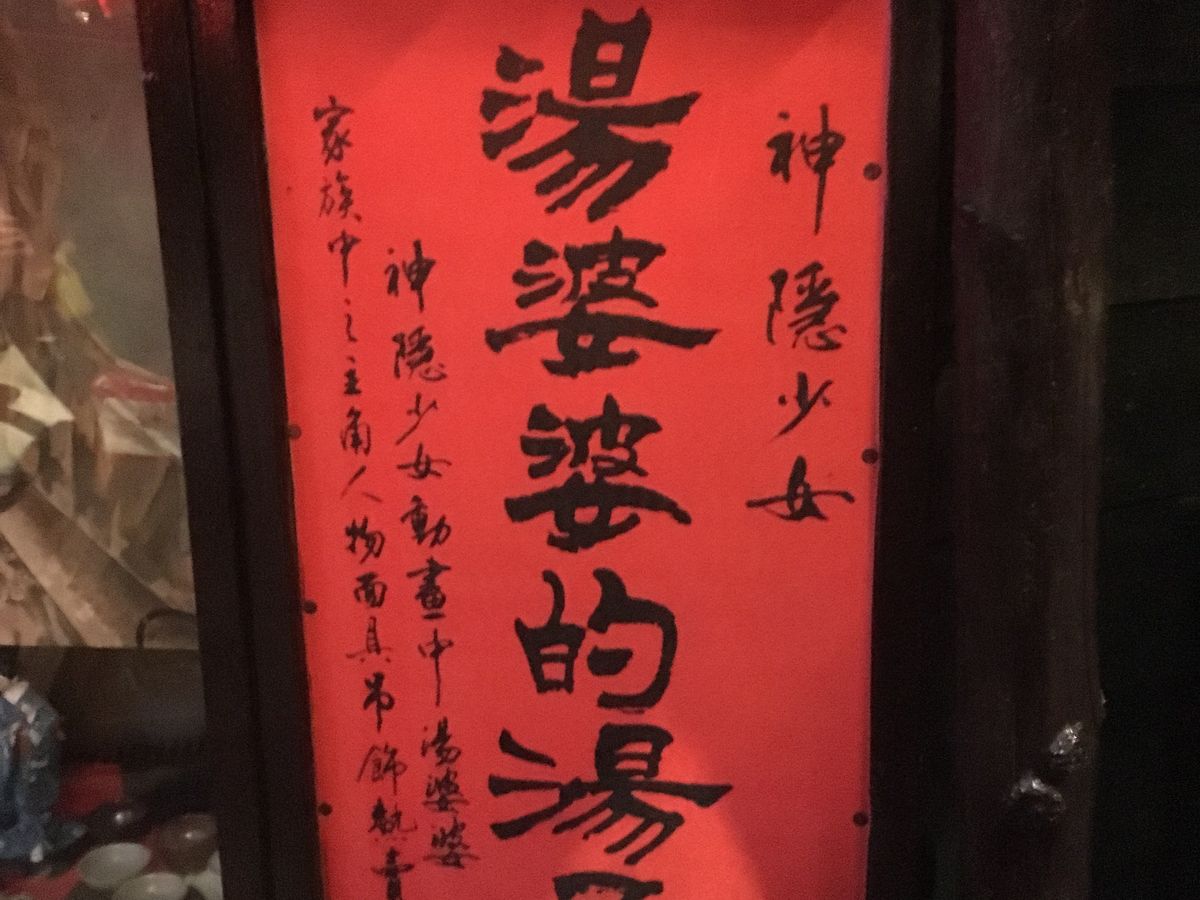 神隱少女
湯婆婆的湯
神隱少女動畫中湯婆婆
家族中之主角人物面具吊飾熱賣